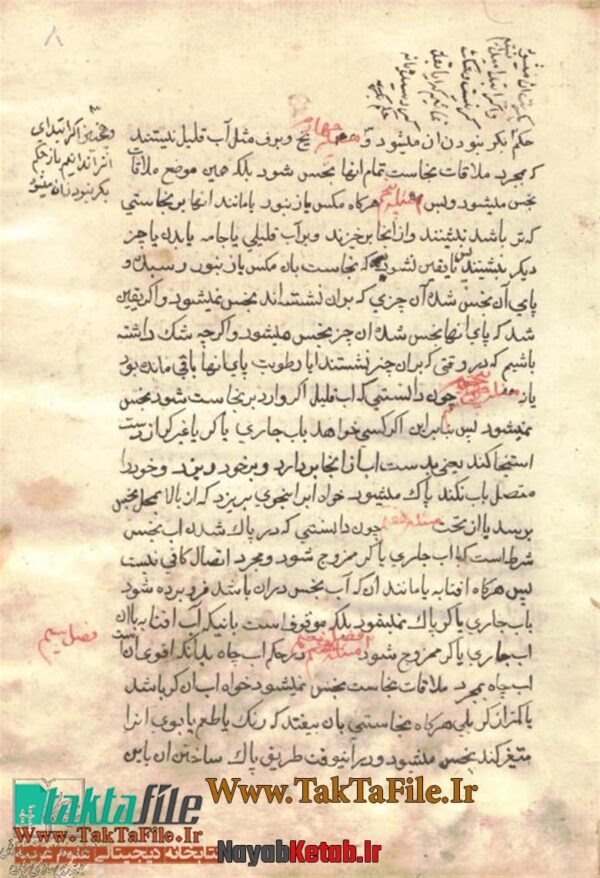 ۸
حکم بکر بودن ان میشود و مسئله چهارم یخ و برف مثل آب قلیل نیستند
که بمجرد ملاقات نجاست تمام انها نجس شود بلکه همین موضع ملاقات
نجس میشود و بس مسئله پنجم هرکاه مکس یا زنبور یا مانند انها بر نجاستی
که تر باشد نشینند و از انجا برخیزند و بر آب قلیلی یا جامه یا بدن یا چیز
دیکر بنشینند پس تا یقین نشود که نجاست بان مکس یا زنبور رسیده و
پای آن نجس شده آن چیزی که بران نشسته اند نجس نمیشود و اکر یقین
شد که پای انها نجس شده ان چیز نجس میشود و اکرچه شک داشته
باشیم که در وقتی که بران چیز نشستند ایا رطوبت پای انها باقی مانده بود
یا نه مسئله چون دانستی که اب قلیل اکر وارد بر نجاست شود نجس
نمیشود پس بنابراین اکر کسی خواهد باب جاری یا کر یا غیر کر از دست
استنجا کند یعنی بدست اب از انجا بردارد و بر خود ریزد و خود را
متصل باب نکند پاک میشود خواه ابرا بنحوی بریزد که از بالا بمحل نجس
برسد یا از تحت مسئله هفتم چون دانستی که در پاک شدن اب نجس
شرط است که با اب جاری یا کر ممزوج شود و مجرد اتصال کافی نیست
پس هرکاه افتابه یا مانند آن که آب نجس دران باشد فرو برده شود
باب جاری یا کر پاک نمیشود بلکه موقوف است بانیکه آب افتابه با ان
اب جاری یا کر ممزوج شود فصل پنجم در حکم اب چاه بدانکه اقوی آن است
اب چاه بمجرد ملاقات نجاست نجس نمیشود خواه اب ان کر باشد
یا کمتر از کر بلی هرکاه نجاستی بان بیفتد که رنک یا طعم یا بوی انرا
متغیر کند نجس میشود و در اینوقت طریق پاک ساختن ان باین
Www.TakTaFile.Ir
Taktafile
Www.TakTaFile.Ir
کتابخانه دیجیتالی علوم غریبه
NayabKetab.Ir